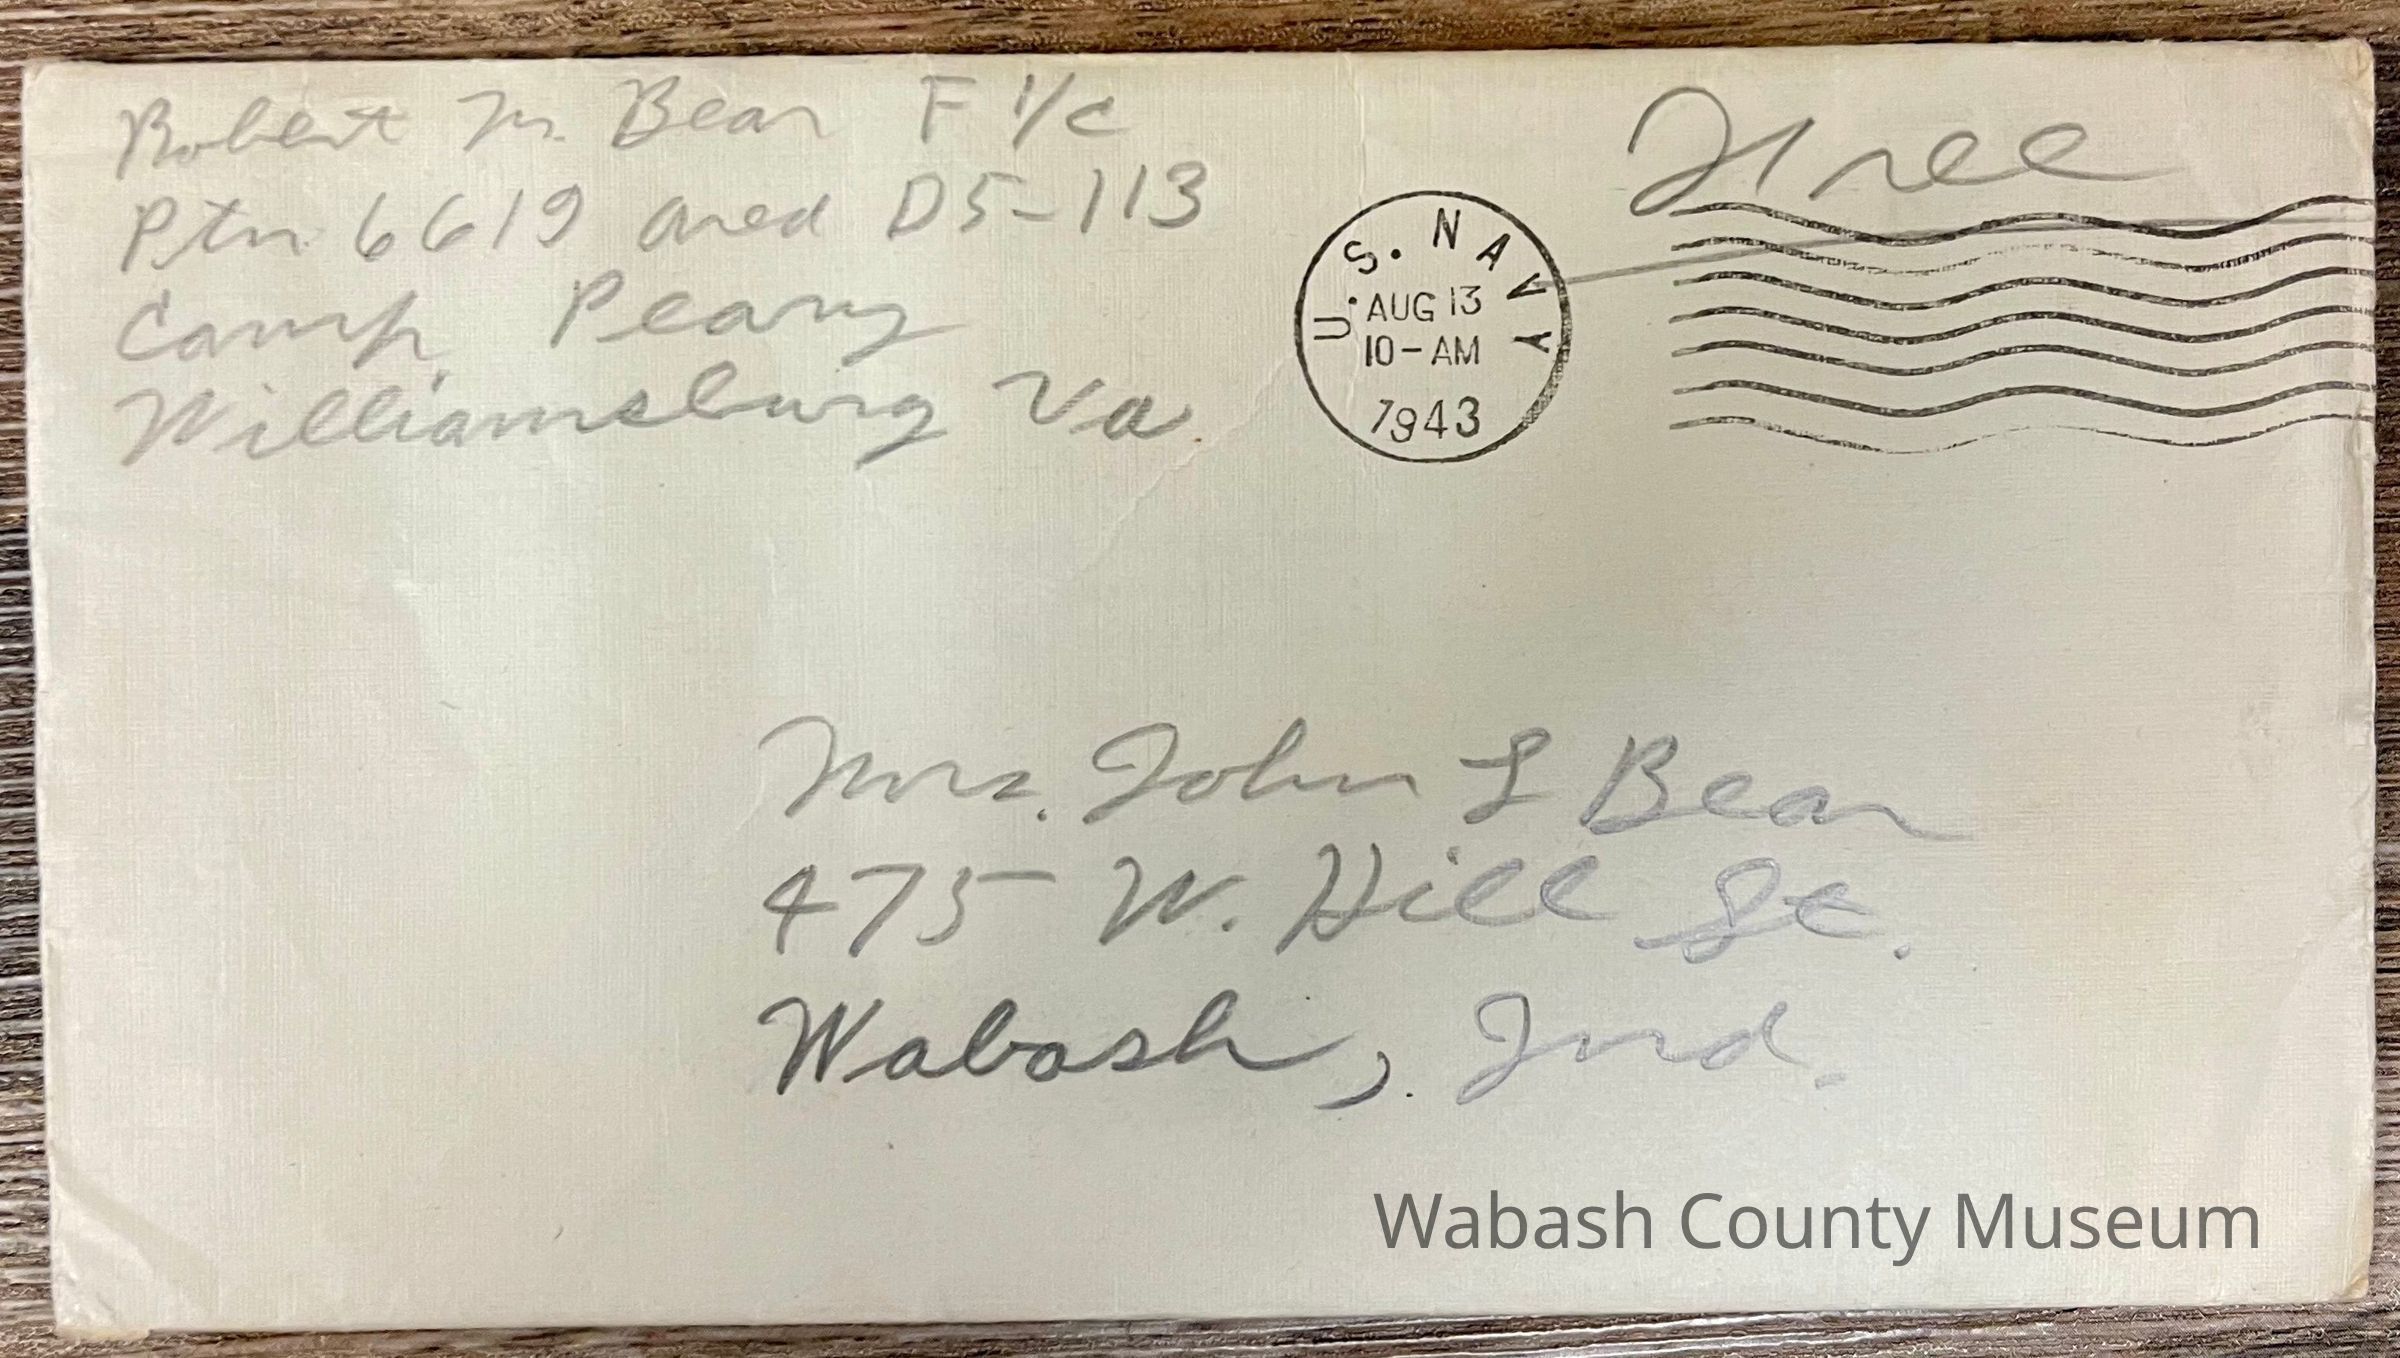 Robert M. Bear F 1/c
Ptn 6619 area D5-113
Camp Peary
Williamsburg Va
Free
U.S. NAVY
AUG 13
10-AM
1943
Mrs. John L Bear
475 W. Hill St.
Wabash, Ind.
Wabash County Museum